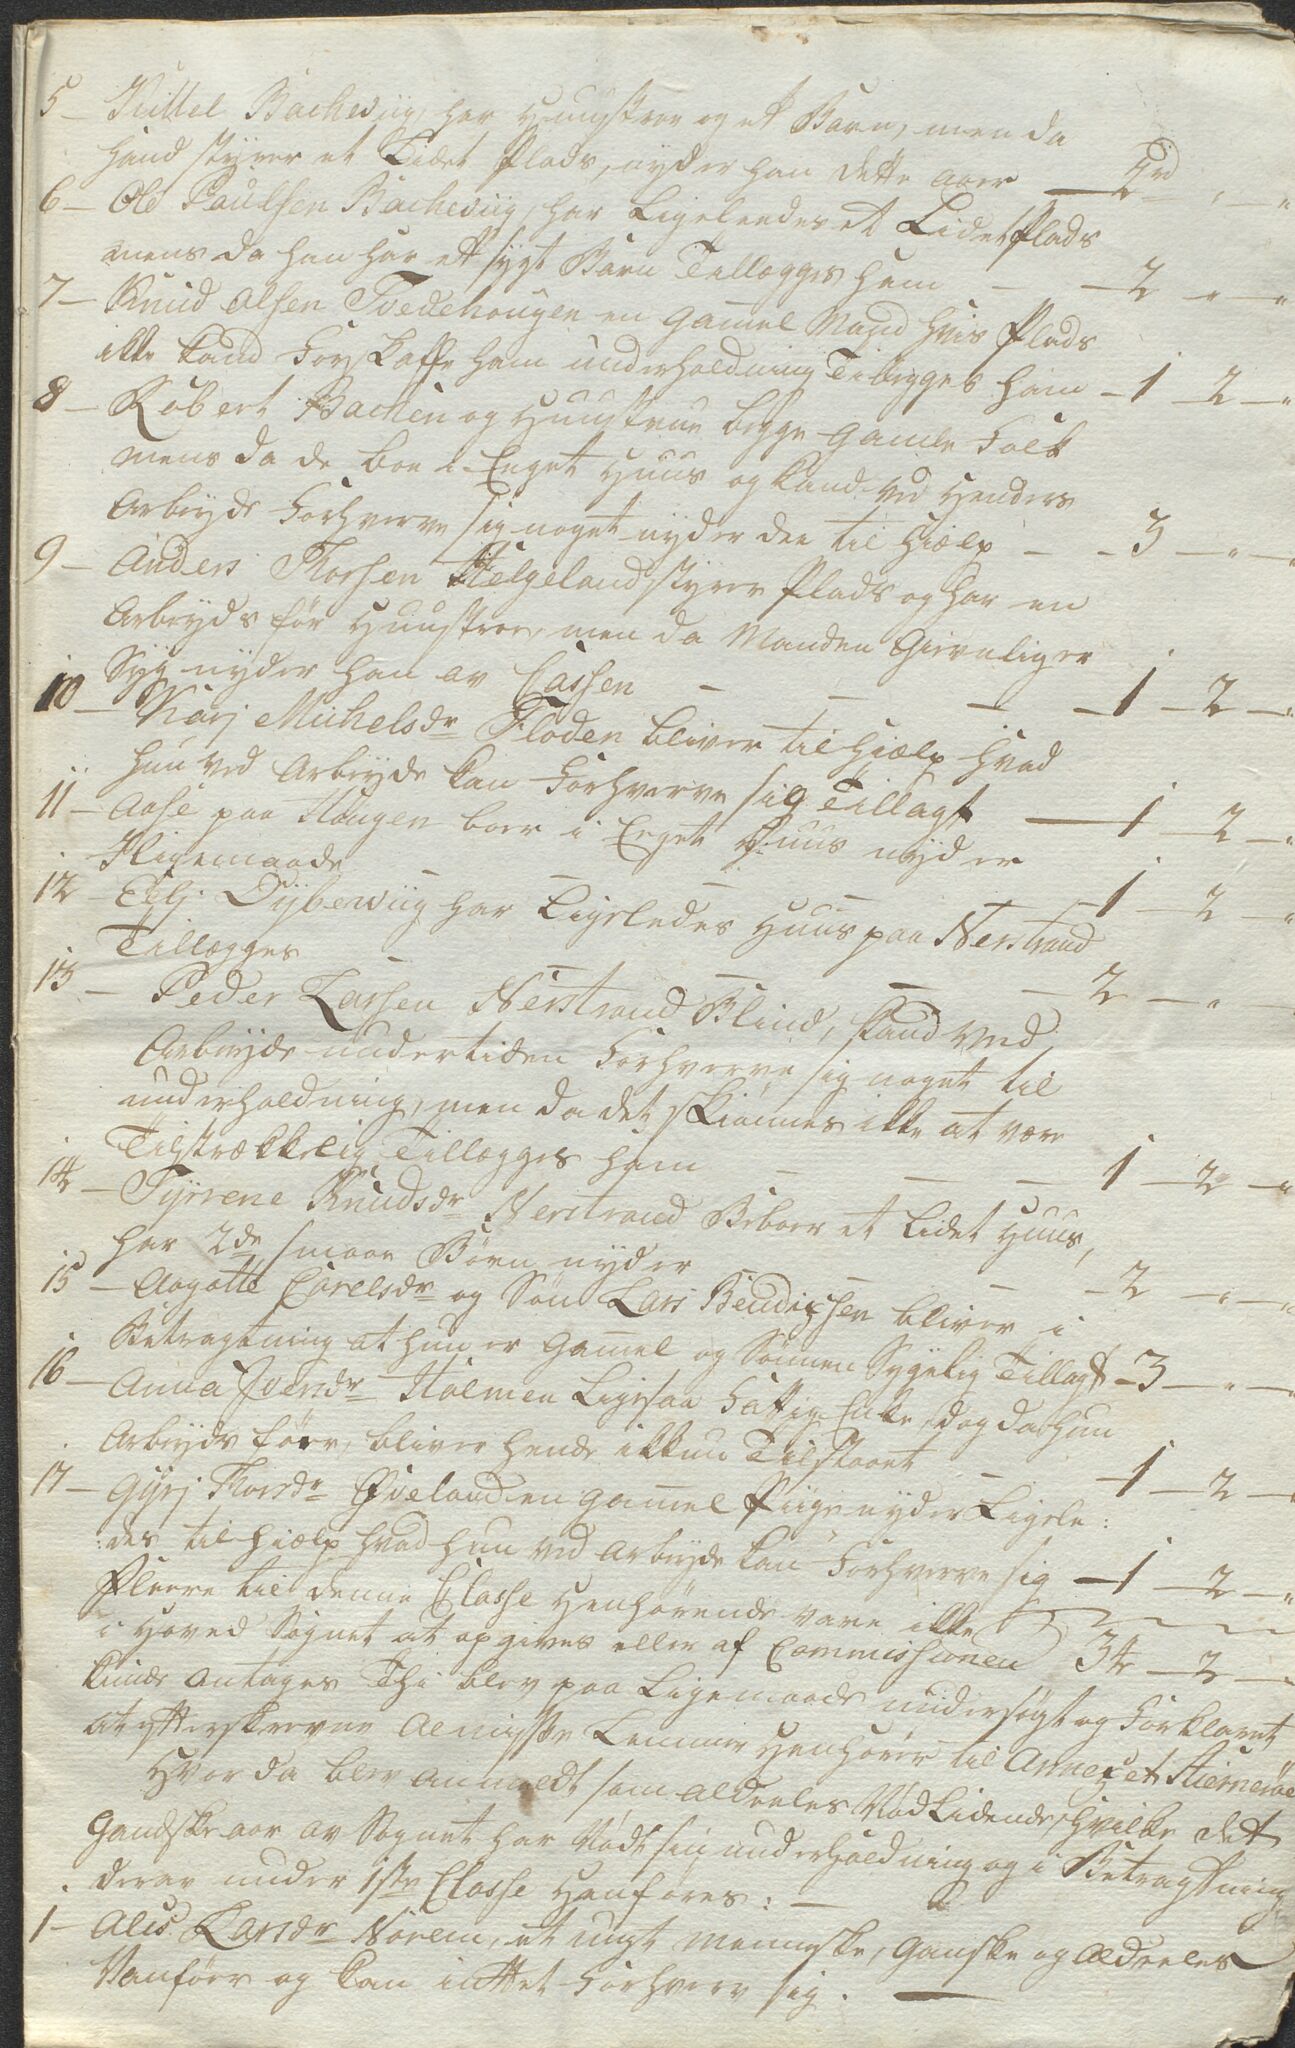 5 — Kittel Bachewiig, har Huustroe og et Barn, men da
Hand styrer et Lidet Plads, nyder han dette aaer — 2rd „ — „
6 — Ole Paulsen Bachewiig, har Ligeleedes et Lidet Plads
mens da han har et sygt Barn Tillægges ham — — 2 „ — „
7 — Knud Olsen Tvedehougen en gamel Mand hvis Plads
ikke kand Forskaffe ham underholdning Tilegges ham — 1 — 2 — „
8 — Robert Bachen og Huustrue begge gamle Folk
mens da de boe i Eeget Huus og kand ved Henders
Arbeyde Forhverve sig noget nyder dee til Hielp — — 3 — „ — „
9 — Anders Thorsen Helgeland styrer Plads og har en
Arbeyds før Huustroe, men da Manden Gievnlig er
Syg nyder han av Cassen — — — — 1 — 2 — „
10 — Karj Michelsdr Floden bliver til Hielp hvad
hun ved Arbeyde kan Forhverve sig Tillagt — 1 — 2 — „
11 — Aase paa Haugen boer i Eeget Huus nyder
Ligemaade — — — — 1 — 2 — „
12 — Eelj Dybewiig har Ligeledes Huus paa Nerstrand
Tillegges — — — — — 2 — „ —
13 — Peder Larsen Nerstrand Blind, kand ved
Arbeyde undertiden Forhverve sig noget til
underholdning, men da det skiønnes ikke at være
Tilstrækkelig Tillægges ham — — — 1 — 2 — „
14 — Tyrrene Knudsdr Nerstrand Beboer et lidet Huus,
har 2de smaae Børn nyder — — — 2 — „ — „
15 — Aagotte Carelsdr og Søn Lars Bendixsen bliver i
Betragtning at hun er gamel og Sønnen Sygelig Tillagt — 3 — „ — „
16 — Anna Iversdr Holmen Ligesaa Fattig Enke, dog da hun
Arbeyds føer, bliver hende ikkun Tilstaaet — — 1 — 2 — „
17 — Gyrj Thorsdr Øveland en gamel Piige nyder Ligele:
:des til hielp hvad hun ved Arbeyde kan Forhverve sig — 1 — 2 — „
Fleere til denne Classe Henhørende vare ikke
i Hoved Sognet at opgives eller af Commissionen 34 — 2 —
kunde antages Thi blev paa Ligemaade undersøgt og Forklaret
at efterskrevne Almisse Lemmer Henhører til Annexet Hiernerøe
Hvor da blev anmeldt som aldeeles Nødlidende, Hvilke det
gandske aar av Sognet har Nødt sin underholdning og i Betragtning
derav under 1ste Classe Henføres: —
1 — Alis Larsdr Norem, et ungt Menniske, ganske og aldeeles
Vanfør og kan inttet Forhverv sig. —